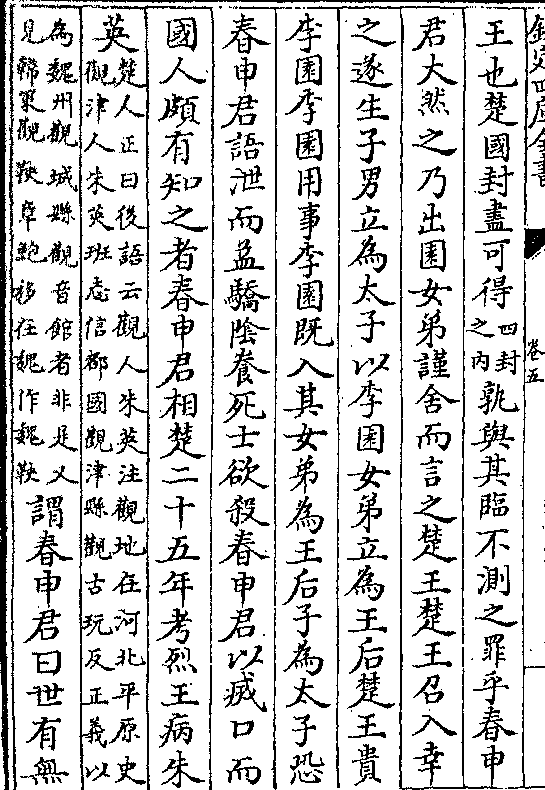 欽定四庫全書
卷五
王也楚國封盡可得四封之内孰與其臨不測之罪乎春申
君大然之乃出園女弟謹舍而言之楚王楚王召入幸
之遂生子男立為太子以李園女弟立為王后楚王貴
李園李園用事李園既入其女弟為王后子為太子恐
春申君語泄而益驕陰養死士欲殺春申君以滅口而
國人頗有知之者春申君相楚二十五年考烈王病朱
英楚人正曰後語云觀人朱英注觀地在河北平原史觀津人朱英班志信都國觀津縣觀古玩反正義以
為魏州觀城縣觀音館者非是又見韓策觀鞅章鮑移在魏作魏鞅謂春申君曰世有無